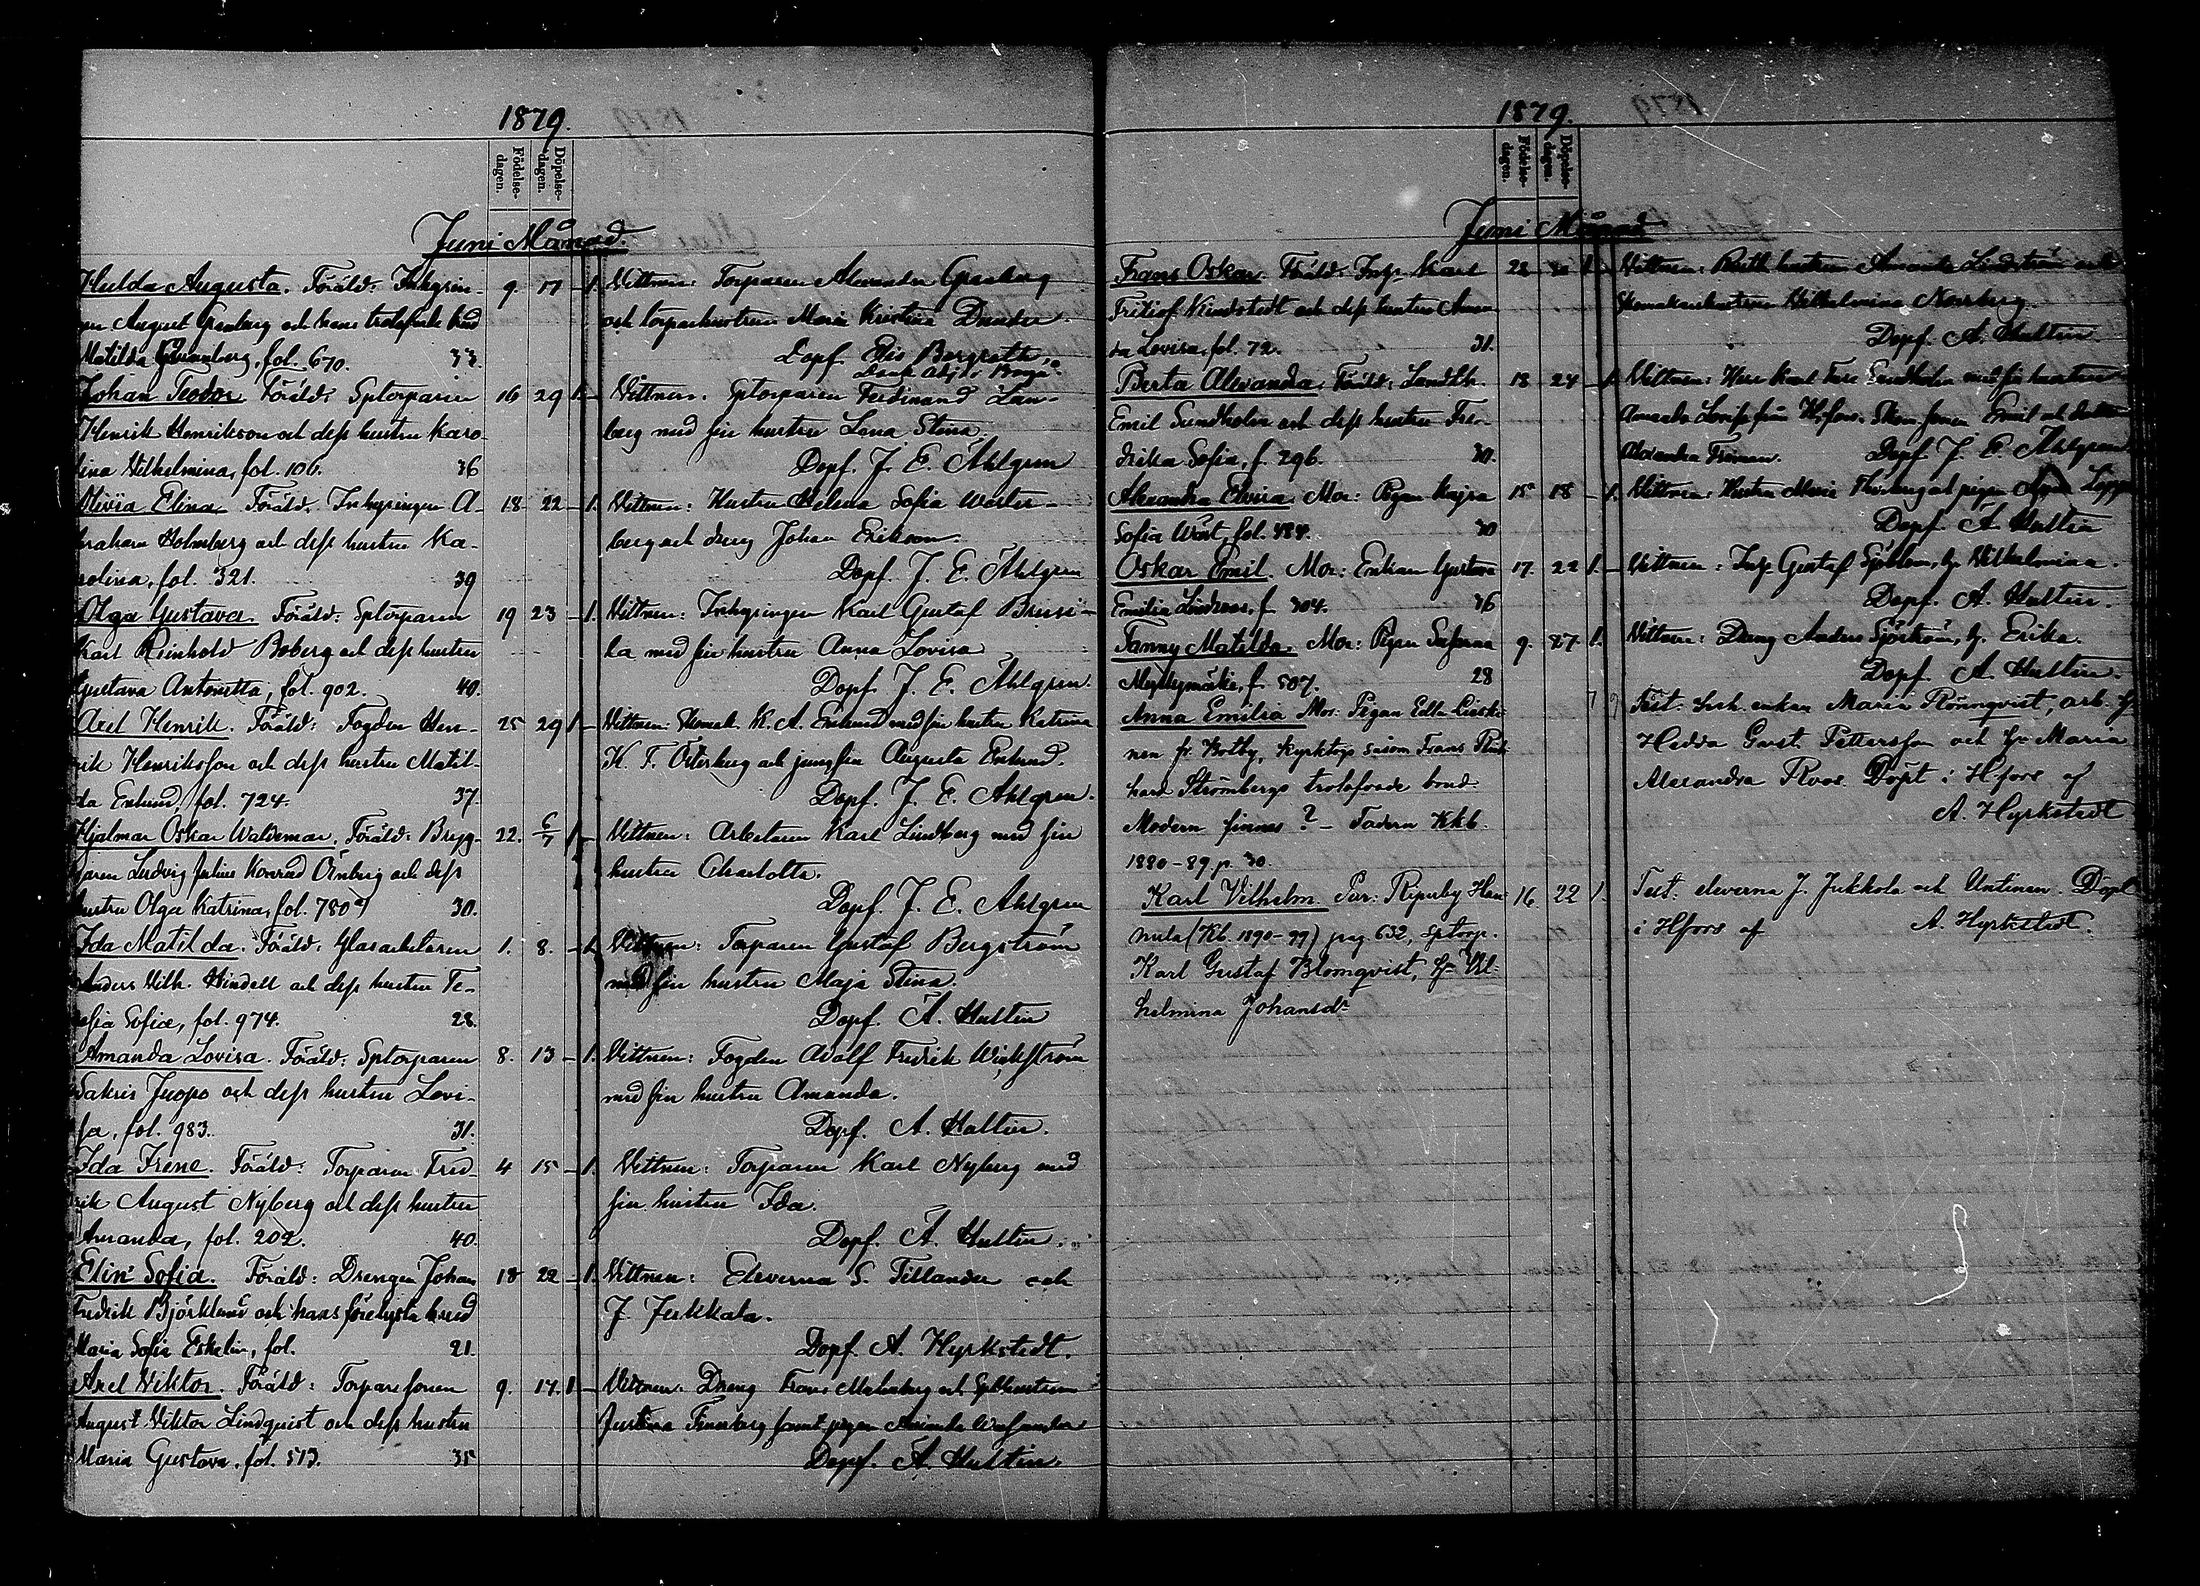 1879.
Födelse-
dagen.
Döpelse-
dagen.
Juni Månad.
Hulda Augusta. Föräld: Inhysin- 9 17 - 1.
gen August Granberg och hans trolofvade brud
Matilda Grannberg, fol. 670. 33.
Vittnen: Torparen Alexander Granberg
och torparhustrun Maria Kristina Dunder
Döpf. Elis Bergroth,
Domk. Adj. i Borgå
Johan Teodor. Föräld: Sptorparen 16 29 1. -
Henrik Henrikson och dess hustru Karo-
lina Vilhelmina, fol. 106. 36
Vittnen: Sptorparen Ferdinand Lan-
berg med sin hustru Lena Stina.
Döpf. J. E. Ahlgren
Olivia Elina. Föräld: Inhysingen A- 18 22 - 1.
braham Holmberg och dess hustru Ka-
rolina, fol. 321. 39
Vittnen: Hustru Helena Sofia Wester-
berg och dreng Johan Erikson.
Döpf. J. E. Ahlgren
Olga Gustava. Föräld: Sptorparen 19 23 - 1.
Karl Reinhold Boberg och dess hustru
Gustava Antonetta, fol. 902. 40.
Vittnen: Inhysingen Karl Gustaf Brusi-
la med sin hustru Anna Lovisa
Döpf. J. E. Ahlgren.
Axel Henrik. Föräld: Fogden Hen- 25 29 1 -
rik Henriksson och dess hustru Matil-
da Enlund, fol. 724. 37.
Vittnen: K. A. Enlund med sin hustru Katrina
K. F. Österberg och jungfrun Augusta Enlund.
Döpf. J. E. Ahlgren.
Hjalmar Oskar Waldemar. Föräld: Bryg- 22. 6/7 1 -
garen Ludvig Julius Konrad Örnberg och dess
hustru Olga Katrina, fol. 780 30.
Vittnen: Arbetaren Karl Lindberg med sin
hustru Charlotta.
Döpf. J. E. Ahlgren
Ida Matilda. Föräld: Glasarbetaren 1. 8. - 1.
Anders Vilh. Windell och dess hustru Te-
resia Sofia, fol. 974. 28.
Vittnen: Torparen Gustaf Bergström
med sin hustru Maja Stina.
Döpf. A. Hultin
Amanda Lovisa. Föräld: Sptorparen 8. 13 - 1.
Sakris Juopo och dess hustru Lovi-
sa, fol. 983. 31.
Vittnen: Fogden Adolf Fredrik Wickström
med sin hustru Amanda.
Döpf. A. Hultin.
Ida Irene. Föräld: Torparen Fred- 4 15 - 1.
rik August Nyberg och dess hustru
Amanda, fol. 202. 40.
Vittnen: Torparen Karl Nyberg med
sin hustru Ida.
Döpf. A. Hultin.
Elin Sofia. Föräld: Drengen Johan 18 22 - 1.
Fredrik Björklund och hans förelysta brud
Maria Sofia Eskelin, fol. 21.
Vittnen: Eleverna S. Tillander och
J. Jukkala.
Döpf. A. Hyrkstedt.
Axel Viktor. Föräld: Torparesonen 9. 17. 1 -
August Viktor Lindqvist och dess hustru
Maria Gustava, fol. 513. 35
Vittnen: Dreng Frans Malmberg och
Justina Finnberg samt pigan Amanda
Döpf. A. Hultin.
1879.
Födelse-
dagen.
Döpelse-
dagen.
Juni Månad
Frans Oskar. Föräld: Inhys. Karl 22 1 -
Fritiof Kindstedt och dess hustru Aman-
da Lovisa, fol. 72. 31.
Vittnen: hustrun Amanda Lindström och
Skomakarehustrun Vilhelmina Norrberg.
Döpf. A. Hultin
Berta Alexandra. Föräld: Landth. 18 24 - 1.
Emil Sundholm och dess hustru Fre-
drika Sofia, f. 296. 30.
Vittnen: Herr Karl Sundholm med sin hustru
Amanda Lovisa från Hfors. Emil och
Alexandra Froman. Döpf. J. E. Ahlgren
Alexandra Elvira. Mor: Pigan Kajsa 15 18 - 1.
Sofia Wöst, fol. 484. 30
Vittnen: Hustru Maria och pigan
Döpf. A. Hultin
Oskar Emil. Mor: Enkan Gustava 17. 22 1. -
Emilia Lindroos, f. 304. 36
Vittnen: Inhys. Gustaf Sjöblom, h. Vilhelmina.
Döpf. A. Hultin.
Fanny Matilda. Mor: Pigan Serafina 9. 27. 1.
f. 507. 28
Vittnen: Dreng Anders Sjöström, h. Erika.
Döpf. A. Hultin.
Anna Emilia Mor: Pigan Edla Lieski- ? ?
nen fr. Botby, Kyrktorp såsom Frans Rik-
hard Strömbergs trolofvade brud.
Modern finnes ? - Fadern Kkb.
1880-89 p. 30.
Test: enkan Maria Rönnqvist, arb. h.
Hedda Gust. Pettersson och hr Maria
Alexandra Roos. Döpt i Hfors af
A. Hyrkstedt
Karl Vilhelm. Par: Ripuby Han- 16 22 1.
nula (Kb. 1890-99) pag 632, sptorp.
Karl Gustaf Blomqvist, h. Vil-
helmina Johansdr
Test. eleverna J. Jukkola och Untinen. Döpt
i Hfors af A. Hyrkstedt.